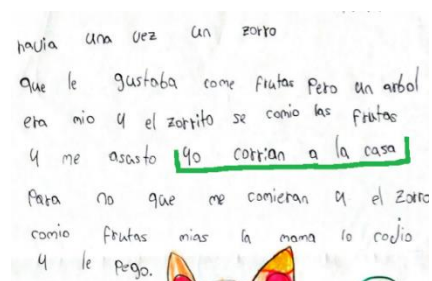 havia una vez un zorro
que le gustaba come frutas Pero un arbol
era mio y el zorrito se comio las frutas
y me asusto yo corrian a la casa
Para no que me comieran y el zorro
comio frutas mias la mama lo codio
y le pego.